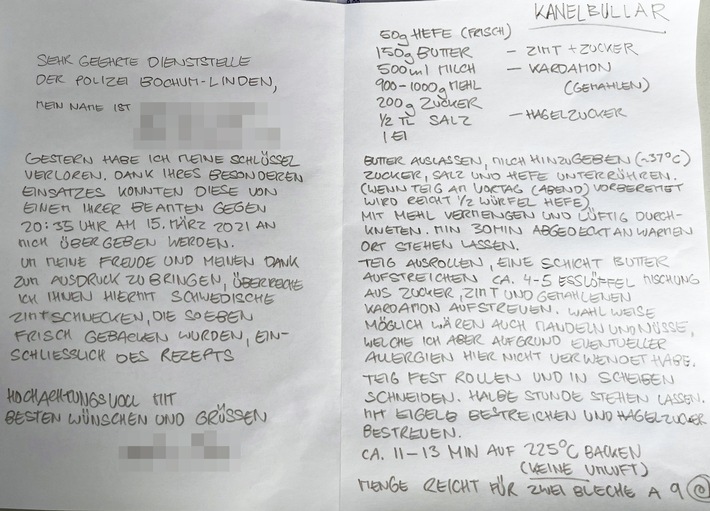 SEHR GEEHRTE DIENSTSTELLE
DER POLIZEI BOCHUM-LINDEN,
MEIN NAME IST
GESTERN HABE ICH MEINE SCHLÜSSEL
VERLOREN. DANK IHRES BESONDEREN
EINSATZES KONNTEN DIESE VON
EINEM IHRER BEAMTEN GEGEN
20:35 UHR AM 15. MÄRZ 2021 AN
MICH ÜBERGEBEN WERDEN.
UM MEINE FREUDE UND MEINEN DANK
ZUM AUSDRUCK ZU BRINGEN, ÜBERREICHE
ICH IHNEN HIERMIT SCHWEDISCHE
ZIMTSCHNECKEN, DIE SOEBEN
FRISCH GEBACKEN WURDEN, EIN-
SCHLIESSLICH DES REZEPTS
HOCHACHTUNGSVOLL MIT
BESTEN WÜNSCHEN UND GRÜSSEN
KANELBULLAR
50g HEFE (FRISCH)
150g BUTTER – ZIMT + ZUCKER
500ml MILCH – KARDAMON
900-1000g MEHL (GEMAHLEN)
200g ZUCKER
1/2 TL SALZ – HAGELZUCKER
1 EI
BUTTER AUSLASSEN, MILCH HINZUGEBEN (~37°C)
ZUCKER, SALZ UND HEFE UNTERRÜHREN.
(WENN TEIG AM VORTAG (ABEND) VORBEREITET
WIRD REICHT 1/2 WÜRFEL HEFE)
MIT MEHL VERMENGEN UND LÜFTIG DURCH-
KNETEN. MIN 30MIN ABGEDECKT AN WARMEN
ORT STEHEN LASSEN.
TEIG AUSROLLEN, EINE SCHICHT BUTTER
AUFSTREICHEN CA. 4-5 ESSLÖFFEL MISCHUNG
AUS ZUCKER, ZIMT UND GEMAHLENEN
KARDAMON AUFSTREUEN. WAHLWEISE
MÖGLICH WÄREN AUCH MANDELN UND NÜSSE,
WELCHE ICH ABER AUFGRUND EVENTUELLER
ALLERGIEN HIER NICHT VERWENDET HABE.
TEIG FEST ROLLEN UND IN SCHEIBEN
SCHNEIDEN. HALBE STUNDE STEHEN LASSEN.
MIT EIGELB BESTREICHEN UND HAGELZUCKER
BESTREUEN.
CA. 11-13 MIN AUF 225°C BACKEN
(KEINE UMLUFT)
MENGE REICHT FÜR ZWEI BLECHE A 9